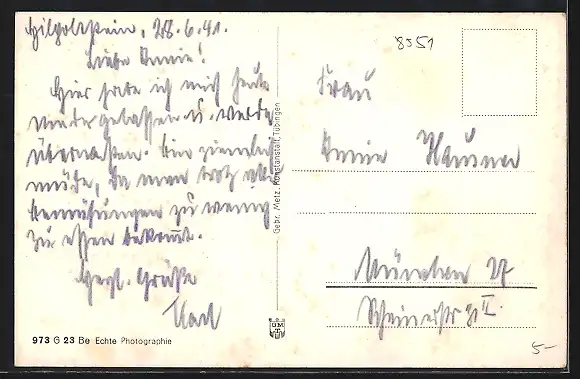 Hilpoltstein, 28.6.41.
Liebe Annie!
Hier habe ich mich heute
niedergelassen u. werde
übernachten. Bin ziemlich
müde, da man trotz aller
Bemühungen zu wenig
zu essen bekommt.
Herzl. Grüße
Karl
973 G 23 Be Echte Photographie
Gebr. Metz, Kunstanstalt, Tübingen
8351
Frau
Annie Hausner
München 27
Scheinerstr. II
5-